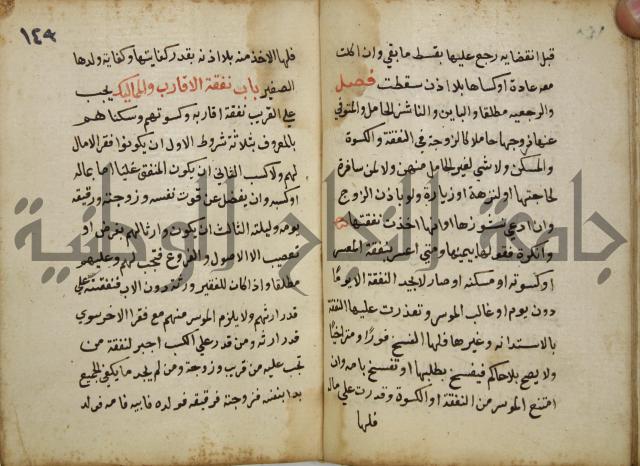 قبل انقضايه رجع عليها بقسط ما بقي وان اكلت
معه عادة او كساها بلا اذن سقطت فصل
والرجعيه مطلقا والباين والناشز الحامل والمتوفي
عنها زوجها حاملا كالزوجة في النفقة والكسوة
والمسكن ولا شي لغير الحامل منهن ولا لمن سافرة
لحاجتها او لنزهة او زيارة ولو باذن الزوج
وان ادعي نشوزها او انها اخذت نفقتها
وانكرة فقولها بيمينها ومتي اعسر بنفقة المعسر
او كسوته او مسكنه او صار لا يجد النفقة الا يوما
دون يوم او غاب الموسر وتعذرت عليها النفقة
بالاستدانه وغيرها فلها الفسخ فورا ومتراخيا
ولا يصح بلا حاكم فيفسخ بطلبها او تفسخ بامره وان
امتنع الموسر من النفقة او الكسوة وقدرت علي ماله
فلها
١٤٣
فلها الاخذ منه بلا اذنه بقدر كفايتها وكفاية ولدها
الصغير باب نفقة الاقارب والمماليك يجب
علي القريب نفقة اقاربه وكسوتهم وسكناهم
بالمعروف بثلاثة شروط الاول ان يكونوا فقرا لا مال
لهم ولا كسب الثاني ان يكون المنفق غنيا اما بماله
او كسبه وان يفضل عن قوت نفسه وزوجته ورقيقه
يومه وليلته الثالث ان يكون وارثا لهم بفرض او
تعصيب الا الاصول والفروع فتجب لهم وعليهم
مطلقا واذا كان للفقير ورثة دون الاب فنفقته علي
قدر ارثهم ولا يلزم الموسر منهم مع فقر الاخر سوي
قدر ارثه ومن قدر علي الكسب اجبر لنفقة من
تجب عليه من قريب وزوجة ومن لم يجد ما يكفي الجميع
بدا بنفسه فزوجته فرقيقه فولده فابيه فامه فولد
جامعة النجاح الوطنية